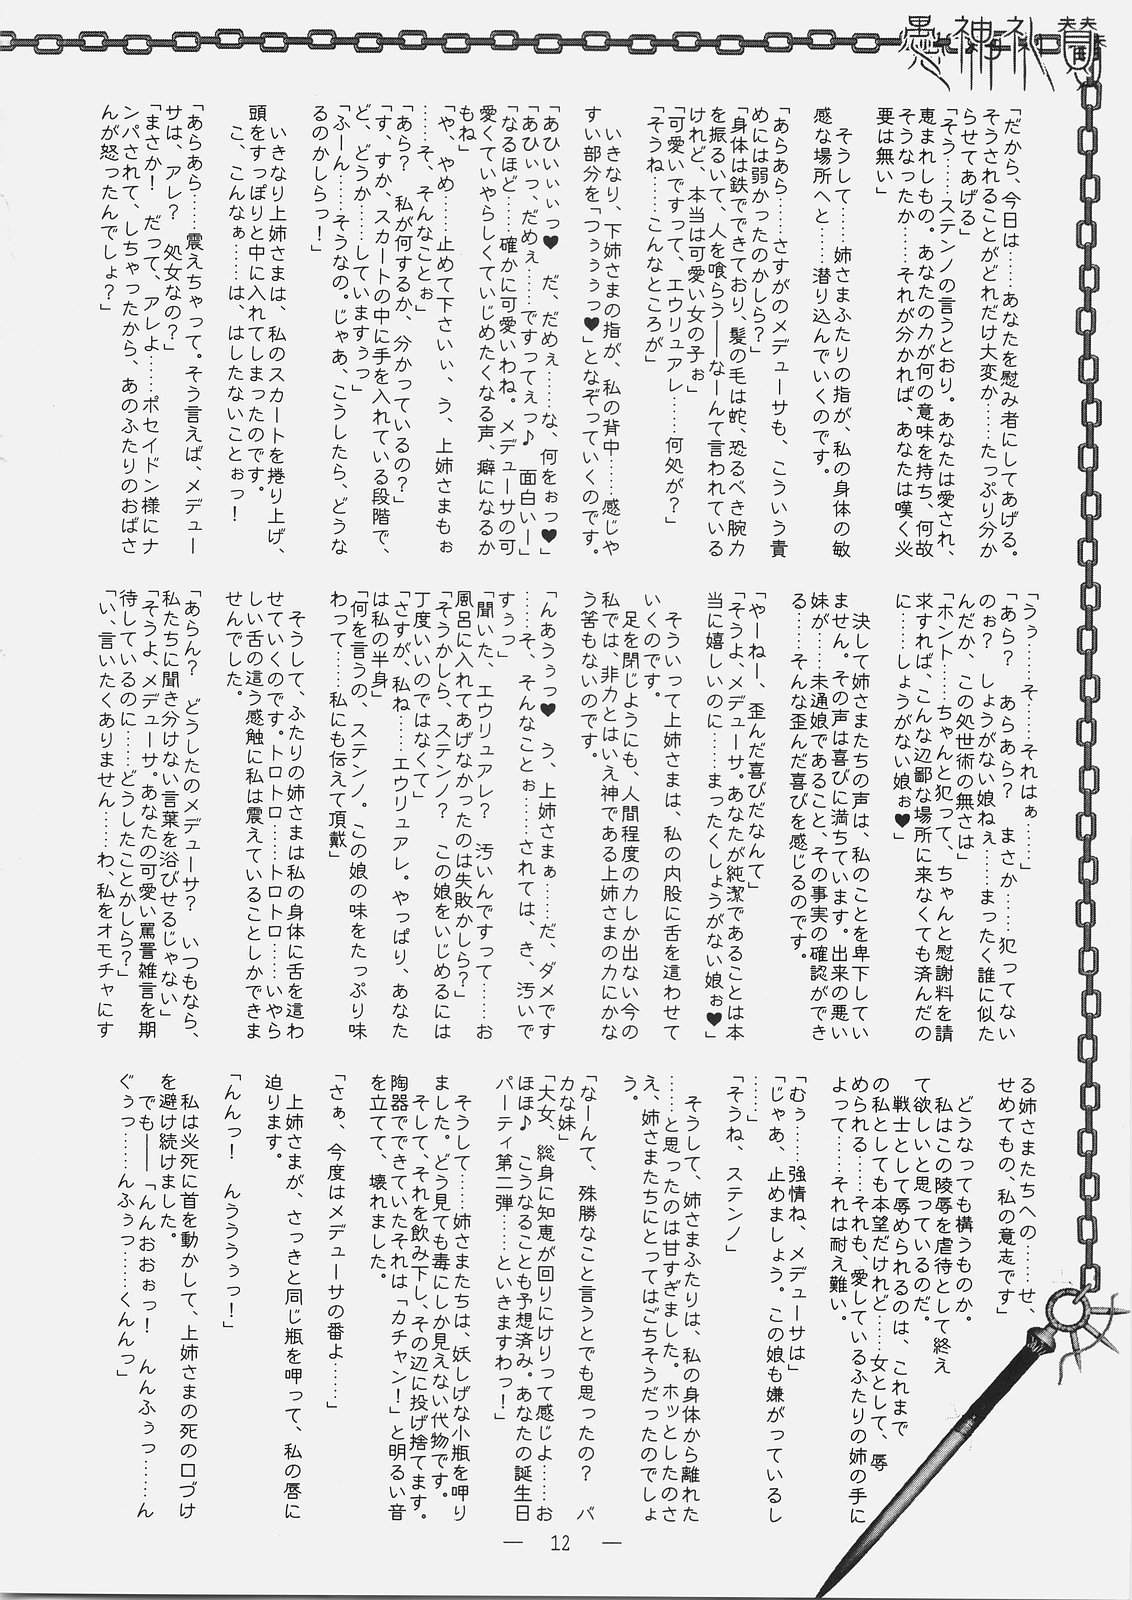 愚神礼賛
「だから、今日は……あなたを慰み者にしてあげる。
そうされることがどれだけ大変か……たっぷり分か
らせてあげる」
「そう……ステンノの言うとおり。あなたは愛され、
恵まれしもの。あなたの力が何の意味を持ち、何故
そうなったか……それが分かれば、あなたは嘆く必
要は無い」
そうして……姉さまふたりの指が、私の身体の敏
感な場所へと……潜り込んでいくのです。
「あらあら……さすがのメデューサも、こういう責
めには弱かったのかしら？」
「身体は鉄でできており、髪の毛は蛇、恐るべき腕力
を振るいて、人を喰らう――なーんて言われている
けれど、本当は可愛い女の子ぉ」
「可愛いですって、エウリュアレ……何処が？」
「そうね……こんなところが」
いきなり、下姉さまの指が、私の背中……感じや
すい部分を「つぅぅぅっ♥」となぞっていくのです。
「あひぃぃぃっ♥　だ、だめぇ……な、何をぉっ♥」
「あひぃっ、だめぇ……ですってえっ♪　面白いー」
「なるほど……確かに可愛いわね。メデューサの可
愛くていやらしくていじめたくなる声、癖になるか
もね」
「や、やめ……止めて下さいぃ、う、上姉さまもぉ
……そ、そんなことぉ」
「あら？　私が何するか、分かっているの？」
「す、すか、スカートの中に手を入れている段階で、
ど、どうか……していますぅっ」
「ふーん……そうなの。じゃあ、こうしたら、どうな
るのかしらっ！」
いきなり上姉さまは、私のスカートを捲り上げ、
頭をすっぽりと中に入れてしまったのです。
こ、こんなぁ……は、はしたないことぉっ！
「あらあら……震えちゃって。そう言えば、メデュー
サは、アレ？　処女なの？」
「まさか！　だって、アレよ……ポセイドン様にナ
ンパされて、しちゃったから、あのふたりのおばさ
んが怒ったんでしょ？」
「うぅ……そ……それはぁ……」
「あら？　あらあら？　まさか……犯ってない
のぉ？　しょうがない娘ねぇ……まったく誰に似た
んだか、この処世術の無さは」
「ホント……ちゃんと犯って、ちゃんと慰謝料を請
求すれば、こんな辺鄙な場所に来なくても済んだの
に……しょうがない娘ぉ♥」
決して姉さまたちの声は、私のことを卑下してい
ません。その声は喜びに満ちています。出来の悪い
妹が……未通娘であること、その事実の確認ができ
る……そんな歪んだ喜びを感じるのです。
「やーねー、歪んだ喜びだなんて」
「そうよ、メデューサ。あなたが純潔であることは本
当に嬉しいのに……まったくしょうがない娘ぉ♥」
そういって上姉さまは、私の内股に舌を這わせて
いくのです。
足を閉じようにも、人間程度の力しか出ない今の
私では、非力とはいえ神である上姉さまの力にかな
う筈もないのです。
「んあうぅっ♥　う、上姉さまぁ……だ、ダメです
……そ、そんなことぉ……されては、き、汚いで
すぅっ」
「聞いた、エウリュアレ？　汚いんですって……お
風呂に入れてあげなかったのは失敗かしら？」
「そうかしら、ステンノ？　この娘をいじめるには
丁度いいのではなくて」
「さすが、私ね……エウリュアレ。やっぱり、あなた
は私の半身」
「何を言うの、ステンノ。この娘の味をたっぷり味
わって……私にも伝えて頂戴」
そうして、ふたりの姉さまは私の身体に舌を這わ
せていくのです。トロトロ……トロトロ……いやら
しい舌の這う感触に私は震えていることしかできま
せんでした。
「あらん？　どうしたのメデューサ？　いつもなら、
私たちに聞き分けない言葉を浴びせるじゃない」
「そうよ、メデューサ。あなたの可愛い罵詈雑言を期
待しているのに……どうしたことかしら？」
「い、言いたくありません……わ、私をオモチャにす
る姉さまたちへの……せ、
せめてもの、私の意志です」
どうなっても構うものか。
私はこの陵辱を虐待として終え
て欲しいと思っているのだ。
戦士として辱められるのは、これまで
の私としても本望だけれど……女として、辱
められる……それも、愛しているふたりの姉の手に
よって……それは耐え難い。
「むぅ……強情ね、メデューサは」
「じゃあ、止めましょう。この娘も嫌がっているし
……」
「そうね、ステンノ」
そうして、姉さまふたりは、私の身体から離れた
……と思ったのは甘すぎました。ホッとしたのさ
え、姉さまたちにとってはごちそうだったのでしょ
う。
「なーんて、殊勝なこと言うとでも思ったの？　バ
カな妹」
「大女、総身に知恵が回りにけりって感じよ……お
ほほ♪　こうなることも予想済み。あなたの誕生日
パーティ第二弾……といきますわっ！」
そうして……姉さまたちは、妖しげな小瓶を呷り
ました。どう見ても毒にしか見えない代物です。
そして、それを飲み下し、その辺に投げ捨てます。
陶器でできていたそれは「カチャン！」と明るい音
を立てて、壊れました。
「さぁ、今度はメデューサの番よ……」
上姉さまが、さっきと同じ瓶を呷って、私の唇に
迫ります。
「んんっ！　んうううぅっ！」
私は必死に首を動かして、上姉さまの死の口づけ
を避け続けました。
でも――「んんおおぉっ！　んんふぅっ……ん
ぐぅっ……んふぅっ……くんんっ」
― 12 ―